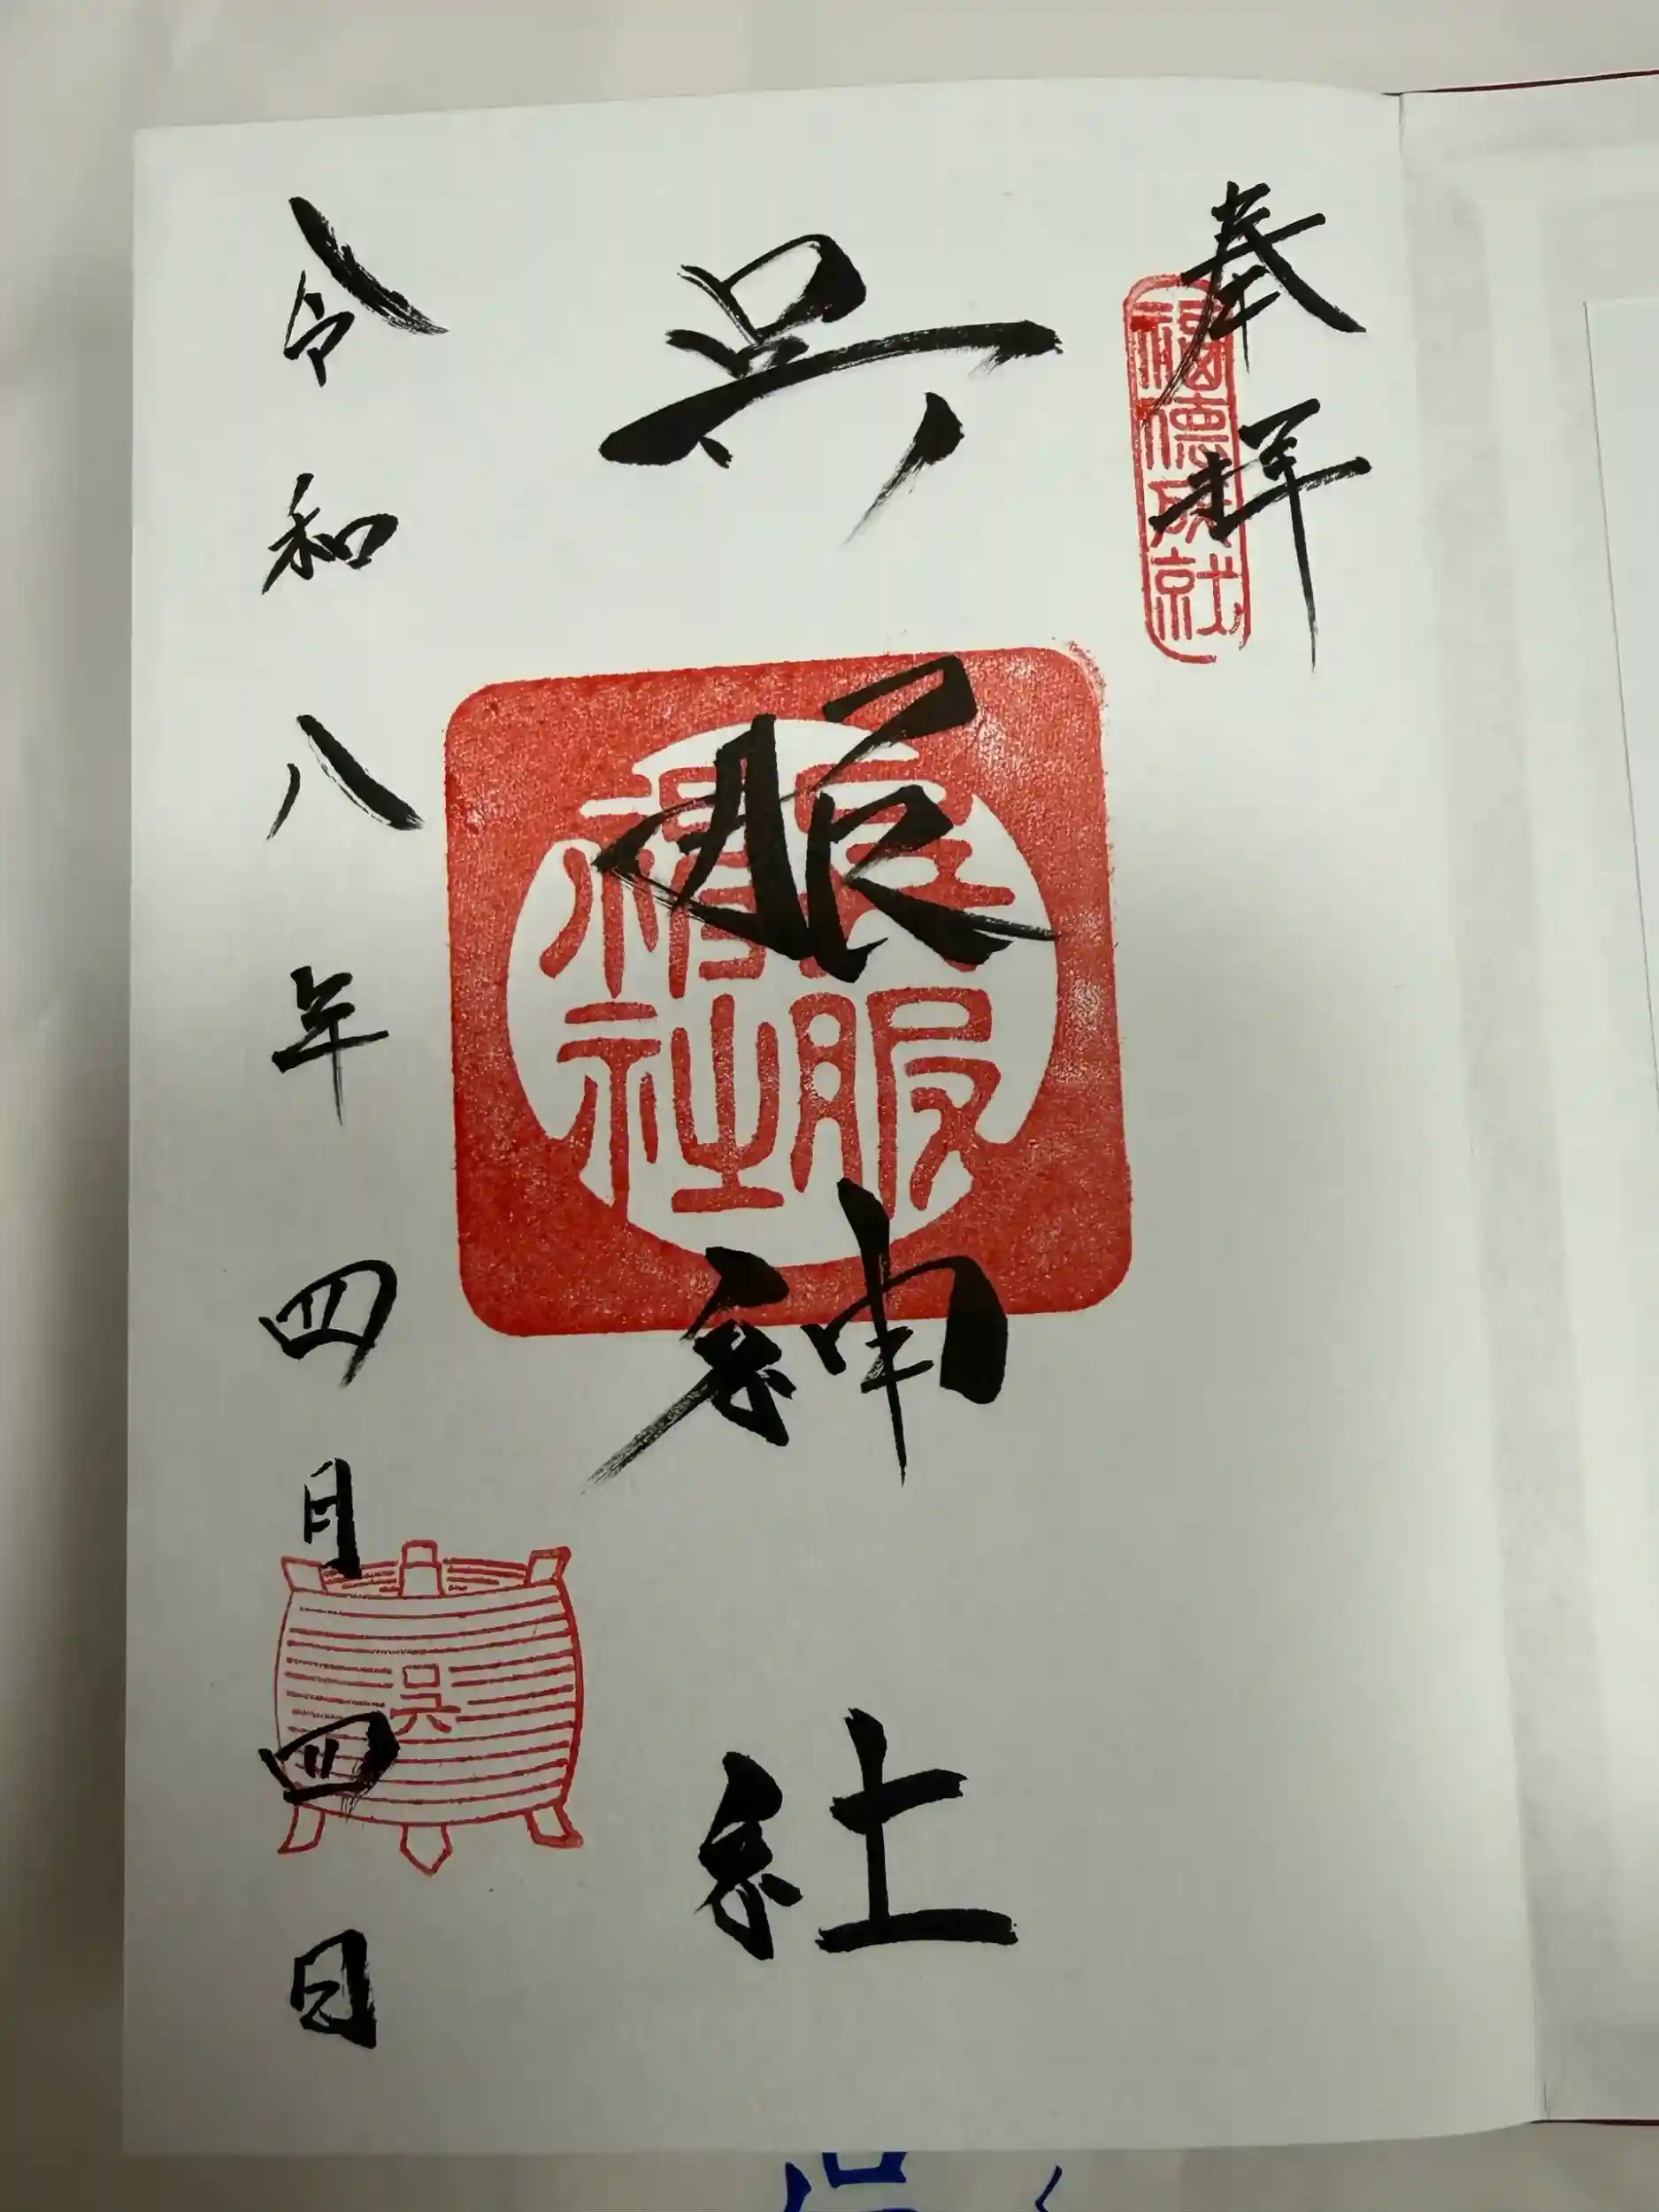 奉拝
福徳成就
呉服神社
呉服神社
令和八年四月四日
呉